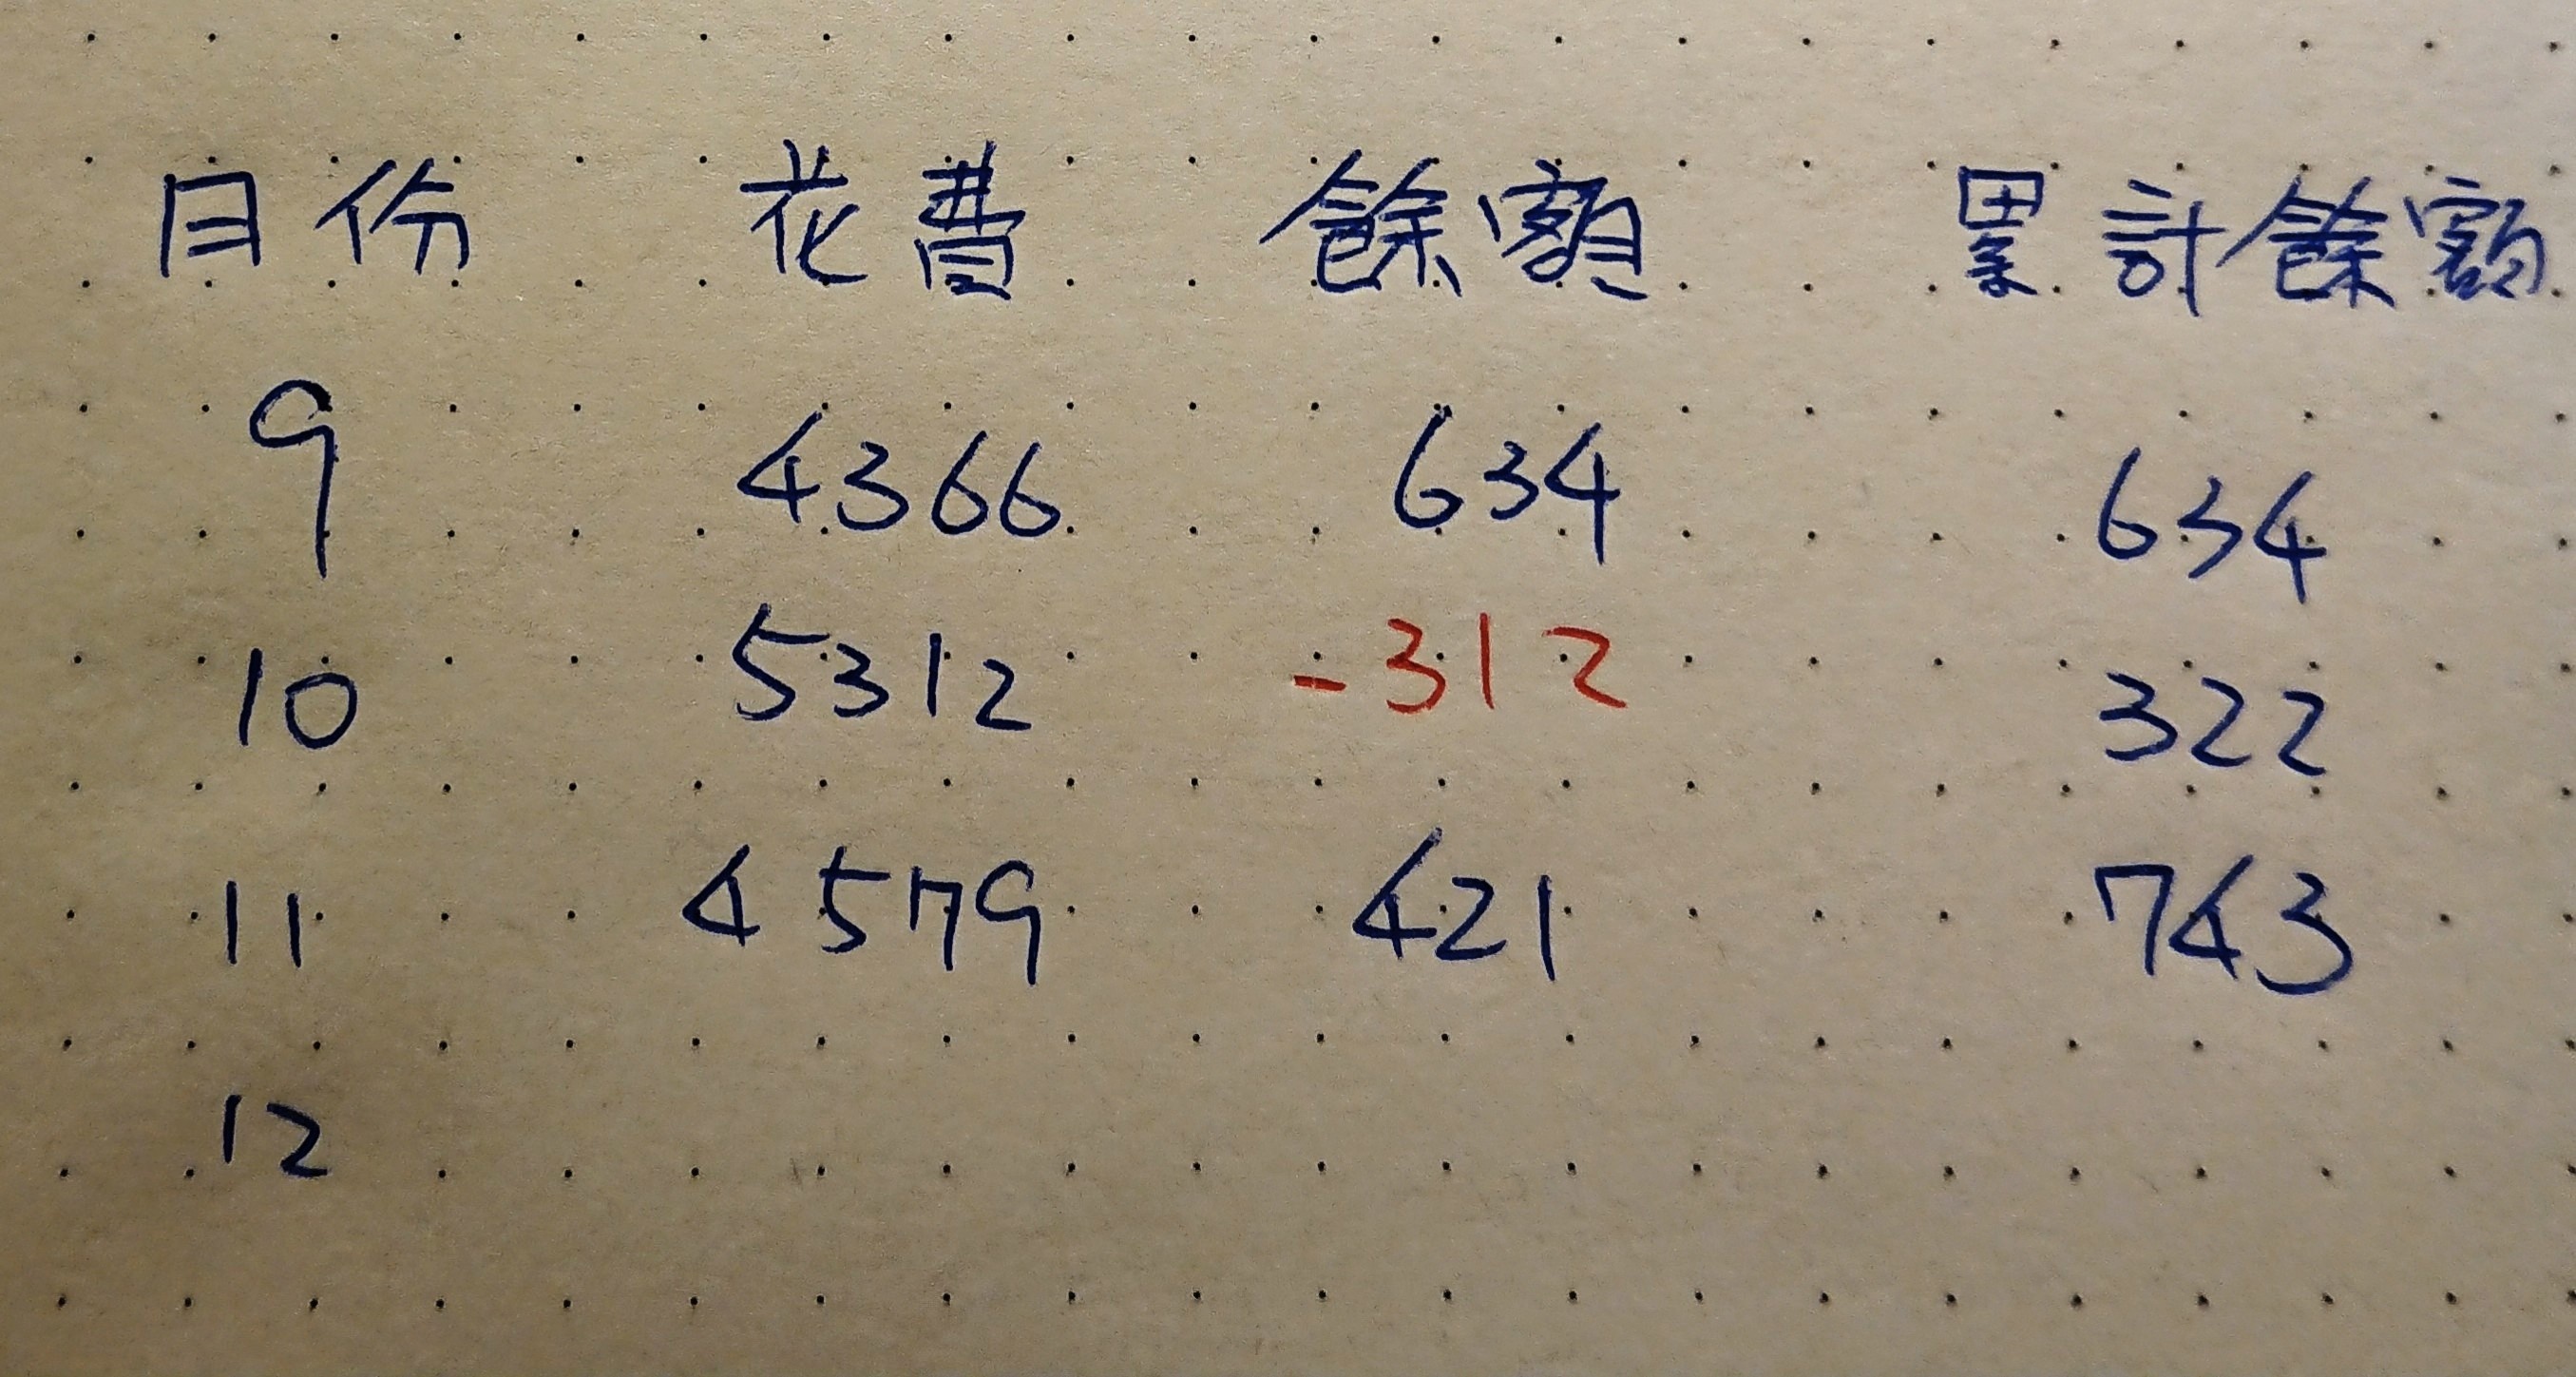 月份 花費 餘額 累計餘額
9 4366 634 634
10 5312 -312 322
11 4579 421 743
12